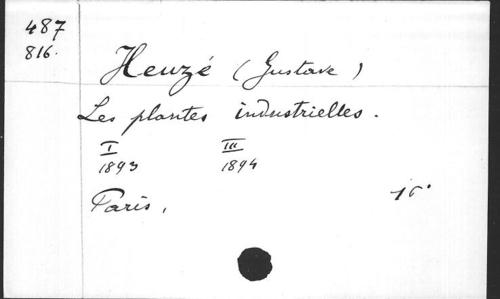 487
816.
Heuzé (Gustave)
Les plantes industrielles.
I III
1893 1894
Paris,